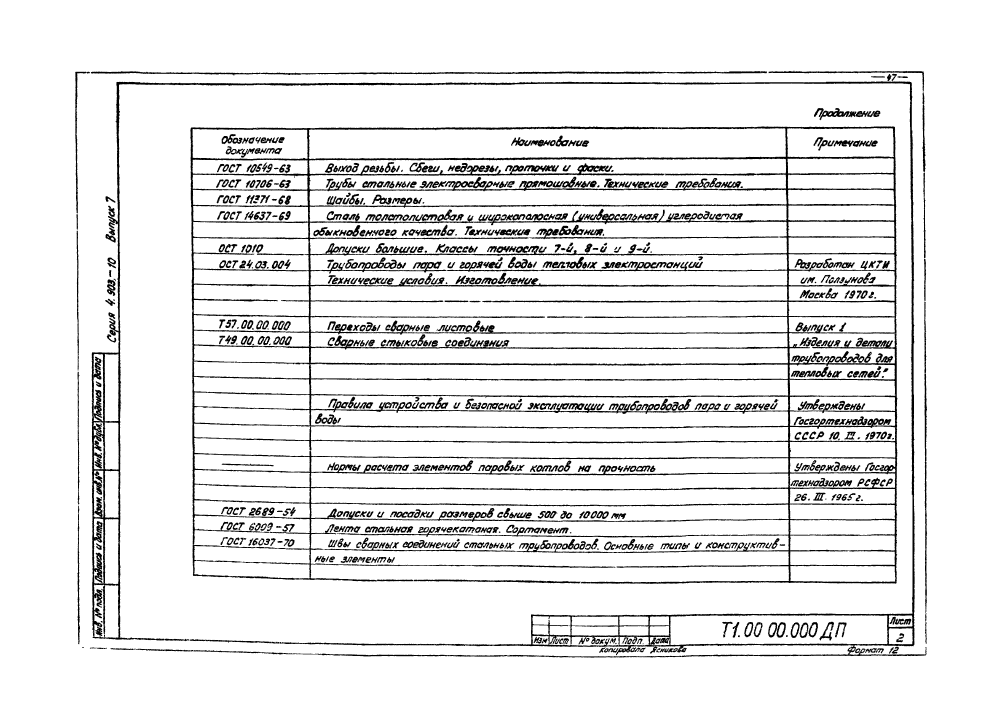 47
Продолжение
Обозначение документа
Наименование
Примечание
ГОСТ 10549-63 Выход резьбы. Сбеги, недорезы, проточки и фаски.
ГОСТ 10706-63 Трубы стальные электросварные прямошовные. Технические требования.
ГОСТ 11371-68 Шайбы. Размеры.
ГОСТ 14637-69 Сталь толстолистовая и широкополосная (универсальная) углеродистая
обыкновенного качества. Технические требования.
ОСТ 1010 Допуски большие. Классы точности 7-й, 8-й и 9-й.
ОСТ 24.03.004 Трубопроводы пара и горячей воды тепловых электростанций Разработан ЦКТИ
Технические условия. Изготовление. им. Ползунова
Москва 1970г.
Т57.00.00.000 Переходы сварные листовые Выпуск 1
Т49.00.00.000 Сварные стыковые соединения „Изделия и детали
трубопроводов для
тепловых сетей."
Правила устройства и безопасной эксплуатации трубопроводов пара и горячей Утверждены
воды Госгортехнадзором
СССР 10. III. 1970г.
Нормы расчета элементов паровых котлов на прочность Утверждены Госгор-
технадзором РСФСР
26. III. 1965г.
ГОСТ 2689-54 Допуски и посадки размеров свыше 500 до 10000 мм
ГОСТ 6009-57 Лента стальная горячекатаная. Сортамент.
ГОСТ 16037-70 Швы сварных соединений стальных трубопроводов. Основные типы и конструктив-
ные элементы
Серия 4.903-10 Выпуск 7
Инв. № подл. Подпись и дата Взам. инв. № Инв. № дубл. Подпись и дата
Изм Лист № докум. Подп. Дата
Т1.00 00.000 ДП
Лист
2
Копировала Ясникова
Формат 12